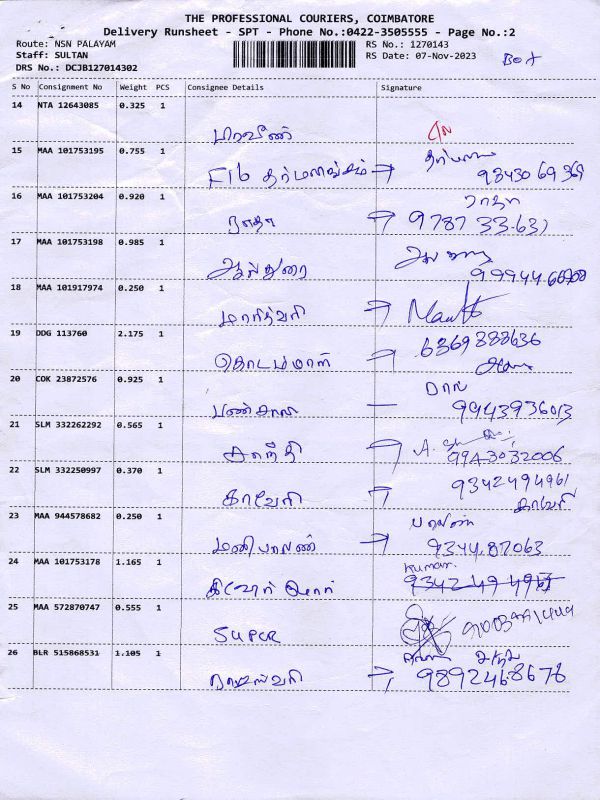 THE PROFESSIONAL COURIERS, COIMBATORE
Delivery Runsheet - SPT - Phone No.:0422-3505555 - Page No.:2
Route: NSN PALAYAM RS No.: 1270143
Staff: SULTAN RS Date: 07-Nov-2023 Box
DRS No.: DCJB127014302
S No Consignment No Weight PCS Consignee Details Signature
14 NTA 12643085 0.325 1
பிரவீண்
15 MAA 101753195 0.755 1
F16 தர்மலிங்கம் 93430 69 369
16 MAA 101753204 0.920 1 ராதா
ராதா 9787 33.631
17 MAA 101753198 0.985 1
99944
18 MAA 101917974 0.250 1
மாரீஸ்வரி
19 DDG 113760 2.175 1 6369388636
20 COK 23872576 0.925 1
9943936013
21 SLM 332262292 0.565 1
9943032006
22 SLM 332250997 0.370 1 9342494961
காவேரி காவேரி
23 MAA 944578682 0.250 1
மணிபாலன் 9344.87063
24 MAA 101753178 1.165 1 Kumar.
25 MAA 572870747 0.555 1
SUPER
26 BLR 515868531 1.105 1
ராஜேஸ்வரி 989246.8678